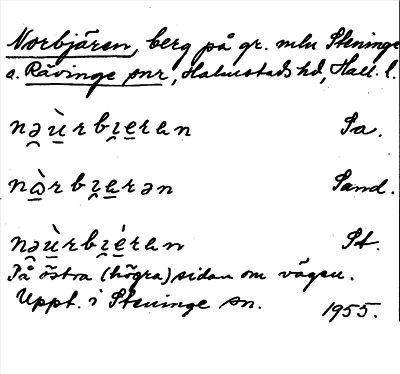 Norbjären, berg på gr. mln Steninge
o. Rävinge snr, Halmstads hd, Hall. l.
nə̯ù̱rbɪ̯e̱ran Sa.
nὼ̱rbɪ̯a̱rən Sand.
nə̯ù̱rbɪ̯é̱ran St.
På östra (högra) sidan om vägen.
Uppt. i Steninge sn. 1955.